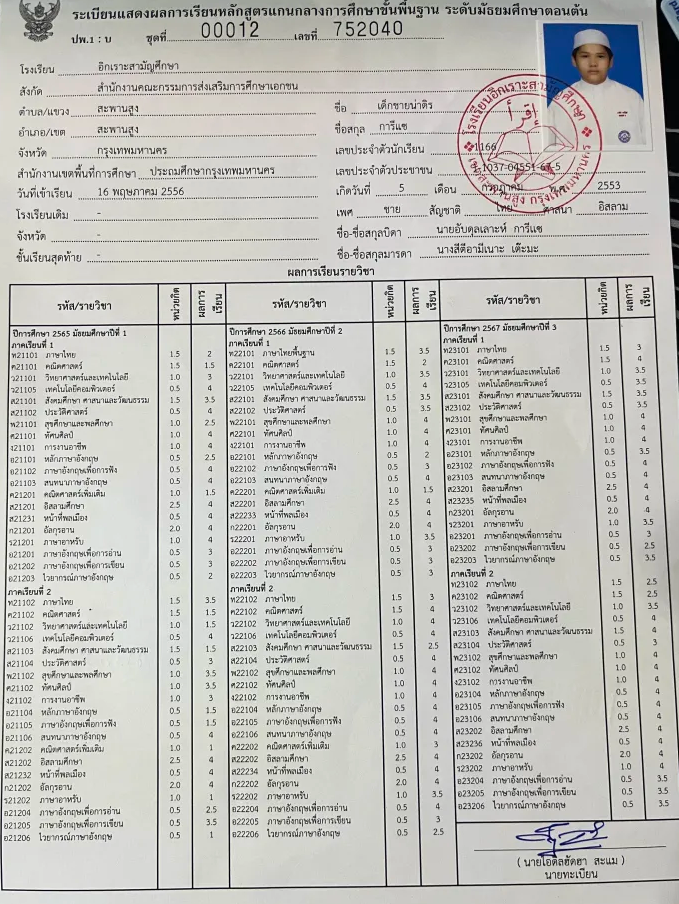 ระเบียนแสดงผลการเรียนหลักสูตรแกนกลางการศึกษาขั้นพื้นฐาน ระดับมัธยมศึกษาตอนต้น
ปพ.1 : บ ชุดที่ 00012 เลขที่ 752040
โรงเรียน อิกเราะสามัญศึกษา
สังกัด สำนักงานคณะกรรมการส่งเสริมการศึกษาเอกชน
ตำบล/แขวง สะพานสูง ชื่อ เด็กชายนาดิร
อำเภอ/เขต สะพานสูง ชื่อสกุล การีแซ
จังหวัด กรุงเทพมหานคร เลขประจำตัวนักเรียน 1166
สำนักงานเขตพื้นที่การศึกษา ประถมศึกษากรุงเทพมหานคร เลขประจำตัวประชาชน 1037-04551-67-5
วันที่เข้าเรียน 16 พฤษภาคม 2556 เกิดวันที่ 5 เดือน กรกฎาคม พ.ศ. 2553
โรงเรียนเดิม - เพศ ชาย สัญชาติ ไทย ศาสนา อิสลาม
จังหวัด - ชื่อ-ชื่อสกุลบิดา นายอับดุลเลาะห์ การีแซ
ชั้นเรียนสุดท้าย - ชื่อ-ชื่อสกุลมารดา นางสีตีอามีเนาะ เต๊ะมะ
โรงเรียนอิกเราะสามัญศึกษา
إقرأ
เขตสะพานสูง กรุงเทพมหานคร
ผลการเรียนรายวิชา
รหัส/รายวิชา หน่วยกิต ผลการเรียน
ปีการศึกษา 2565 มัธยมศึกษาปีที่ 1
ภาคเรียนที่ 1
ท21101 ภาษาไทย 1.5 2
ค21101 คณิตศาสตร์ 1.5 1.5
ว21101 วิทยาศาสตร์และเทคโนโลยี 1.0 3
ว21105 เทคโนโลยีคอมพิวเตอร์ 0.5 4
ส21101 สังคมศึกษา ศาสนาและวัฒนธรรม 1.5 3.5
ส21102 ประวัติศาสตร์ 0.5 4
พ21101 สุขศึกษาและพลศึกษา 1.0 2.5
ศ21101 ทัศนศิลป์ 1.0 4
ง21101 การงานอาชีพ 1.0 4
อ21101 หลักภาษาอังกฤษ 0.5 2.5
อ21102 ภาษาอังกฤษเพื่อการฟัง 0.5 4
อ21103 สนทนาภาษาอังกฤษ 0.5 4
ค21201 คณิตศาสตร์เพิ่มเติม 1.0 1.5
ส21201 อิสลามศึกษา 2.5 4
ส21231 หน้าที่พลเมือง 0.5 4
ก21201 อัลกุรอาน 2.0 4
ร21201 ภาษาอาหรับ 1.0 4
อ21201 ภาษาอังกฤษเพื่อการอ่าน 0.5 3
อ21202 ภาษาอังกฤษเพื่อการเขียน 0.5 3
อ21203 ไวยากรณ์ภาษาอังกฤษ 0.5 2
ภาคเรียนที่ 2
ท21102 ภาษาไทย 1.5 3.5
ค21102 คณิตศาสตร์ 1.5 1.5
ว21102 วิทยาศาสตร์และเทคโนโลยี 1.0 1.5
ว21106 เทคโนโลยีคอมพิวเตอร์ 0.5 4
ส21103 สังคมศึกษา ศาสนาและวัฒนธรรม 1.5 1.5
ส21104 ประวัติศาสตร์ 0.5 3
พ21102 สุขศึกษาและพลศึกษา 1.0 3.5
ศ21102 ทัศนศิลป์ 1.0 3.5
ง21102 การงานอาชีพ 1.0 3
อ21104 หลักภาษาอังกฤษ 0.5 1.5
อ21105 ภาษาอังกฤษเพื่อการฟัง 0.5 1.5
อ21106 สนทนาภาษาอังกฤษ 0.5 4
ค21202 คณิตศาสตร์เพิ่มเติม 1.0 1
ส21202 อิสลามศึกษา 2.5 4
ส21232 หน้าที่พลเมือง 0.5 4
ก21202 อัลกุรอาน 2.0 4
ร21202 ภาษาอาหรับ 1.0 1
อ21204 ภาษาอังกฤษเพื่อการอ่าน 0.5 2.5
อ21205 ภาษาอังกฤษเพื่อการเขียน 0.5 3.5
อ21206 ไวยากรณ์ภาษาอังกฤษ 0.5 1
รหัส/รายวิชา หน่วยกิต ผลการเรียน
ปีการศึกษา 2566 มัธยมศึกษาปีที่ 2
ภาคเรียนที่ 1
ท22101 ภาษาไทยพื้นฐาน 1.5 3.5
ค22101 คณิตศาสตร์ 1.5 2
ว22101 วิทยาศาสตร์และเทคโนโลยี 1.0 3.5
ว22105 เทคโนโลยีคอมพิวเตอร์ 0.5 4
ส22101 สังคมศึกษา ศาสนาและวัฒนธรรม 1.5 3.5
ส22102 ประวัติศาสตร์ 0.5 3.5
พ22101 สุขศึกษาและพลศึกษา 1.0 4
ศ22101 ทัศนศิลป์ 1.0 4
ง22101 การงานอาชีพ 1.0 4
อ22101 หลักภาษาอังกฤษ 0.5 2
อ22102 ภาษาอังกฤษเพื่อการฟัง 0.5 3
อ22103 สนทนาภาษาอังกฤษ 0.5 4
ค22201 คณิตศาสตร์เพิ่มเติม 1.0 1.5
ส22201 อิสลามศึกษา 2.5 4
ส22233 หน้าที่พลเมือง 0.5 4
ก22201 อัลกุรอาน 2.0 4
ร22201 ภาษาอาหรับ 1.0 3.5
อ22201 ภาษาอังกฤษเพื่อการอ่าน 0.5 3
อ22202 ภาษาอังกฤษเพื่อการเขียน 0.5 3
อ22203 ไวยากรณ์ภาษาอังกฤษ 0.5 3
ภาคเรียนที่ 2
ท22102 ภาษาไทย 1.5 3
ค22102 คณิตศาสตร์ 1.5 4
ว22102 วิทยาศาสตร์และเทคโนโลยี 1.0 4
ว22106 เทคโนโลยีคอมพิวเตอร์ 0.5 4
ส22103 สังคมศึกษา ศาสนาและวัฒนธรรม 1.5 2.5
ส22104 ประวัติศาสตร์ 0.5 4
พ22102 สุขศึกษาและพลศึกษา 1.0 4
ศ22102 ทัศนศิลป์ 1.0 4
ง22102 การงานอาชีพ 1.0 4
อ22104 หลักภาษาอังกฤษ 0.5 4
อ22105 ภาษาอังกฤษเพื่อการฟัง 0.5 4
อ22106 สนทนาภาษาอังกฤษ 0.5 4
ค22202 คณิตศาสตร์เพิ่มเติม 1.0 3
ส22202 อิสลามศึกษา 2.5 4
ส22234 หน้าที่พลเมือง 0.5 4
ก22202 อัลกุรอาน 2.0 4
ร22202 ภาษาอาหรับ 1.0 3.5
อ22204 ภาษาอังกฤษเพื่อการอ่าน 0.5 4
อ22205 ภาษาอังกฤษเพื่อการเขียน 0.5 3
อ22206 ไวยากรณ์ภาษาอังกฤษ 0.5 2.5
รหัส/รายวิชา หน่วยกิต ผลการเรียน
ปีการศึกษา 2567 มัธยมศึกษาปีที่ 3
ภาคเรียนที่ 1
ท23101 ภาษาไทย 1.5 3
ค23101 คณิตศาสตร์ 1.5 4
ว23101 วิทยาศาสตร์และเทคโนโลยี 1.0 3.5
ว23105 เทคโนโลยีคอมพิวเตอร์ 0.5 3.5
ส23101 สังคมศึกษา ศาสนาและวัฒนธรรม 1.5 3.5
ส23102 ประวัติศาสตร์ 0.5 3.5
พ23101 สุขศึกษาและพลศึกษา 1.0 4
ศ23101 ทัศนศิลป์ 1.0 4
ง23101 การงานอาชีพ 1.0 4
อ23101 หลักภาษาอังกฤษ 0.5 3.5
อ23102 ภาษาอังกฤษเพื่อการฟัง 0.5 4
อ23103 สนทนาภาษาอังกฤษ 0.5 4
ส23201 อิสลามศึกษา 2.5 4
ส23235 หน้าที่พลเมือง 0.5 4
ก23201 อัลกุรอาน 2.0 4
ร23201 ภาษาอาหรับ 1.0 3.5
อ23201 ภาษาอังกฤษเพื่อการอ่าน 0.5 3
อ23202 ภาษาอังกฤษเพื่อการเขียน 0.5 2.5
อ23203 ไวยากรณ์ภาษาอังกฤษ 0.5 3.5
ภาคเรียนที่ 2
ท23102 ภาษาไทย 1.5 2.5
ค23102 คณิตศาสตร์ 1.5 2.5
ว23102 วิทยาศาสตร์และเทคโนโลยี 1.0 3.5
ว23106 เทคโนโลยีคอมพิวเตอร์ 0.5 4
ส23103 สังคมศึกษา ศาสนาและวัฒนธรรม 1.5 4
ส23104 ประวัติศาสตร์ 0.5 3
พ23102 สุขศึกษาและพลศึกษา 1.0 4
ศ23102 ทัศนศิลป์ 1.0 4
ง23102 การงานอาชีพ 1.0 4
อ23104 หลักภาษาอังกฤษ 0.5 4
อ23105 ภาษาอังกฤษเพื่อการฟัง 0.5 4
อ23106 สนทนาภาษาอังกฤษ 0.5 4
ส23202 อิสลามศึกษา 2.5 4
ส23236 หน้าที่พลเมือง 0.5 4
ก23202 อัลกุรอาน 2.0 4
ร23202 ภาษาอาหรับ 1.0 4
อ23204 ภาษาอังกฤษเพื่อการอ่าน 0.5 3.5
อ23205 ภาษาอังกฤษเพื่อการเขียน 0.5 3.5
อ23206 ไวยากรณ์ภาษาอังกฤษ 0.5 3.5
( นายไอดิลฮัดฮา สะแม )
นายทะเบียน